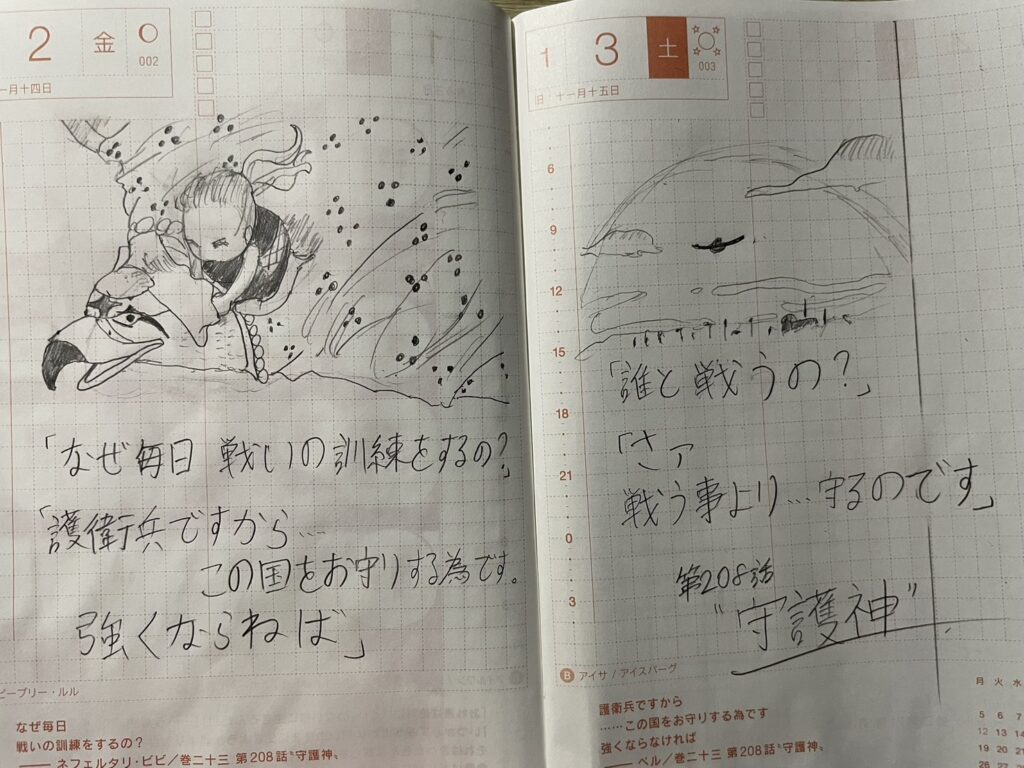 2 金
002
一月十四日
「なぜ毎日 戦いの訓練をするの?」
「護衛兵ですから…
この国をお守りする為です。
強くならねば」
ビーブリー・ルル
なぜ毎日
戦いの訓練をするの?
―― ネフェルタリ・ビビ/巻二十三 第208話“守護神〟
1 3 土
003
十一月十五日
6
9
12
15
18
21
0
3
「誰と戦うの?」
「さァ
戦う事より…守るのです」
第208話
"守護神"
B アイサ / アイスバーグ
護衛兵ですから
……この国をお守りする為です
強くならなければ
―― ペル/巻二十三 第208話“守護神〟
月 火 水
5 6 7
12 13 14
19 20 21
26 27 28